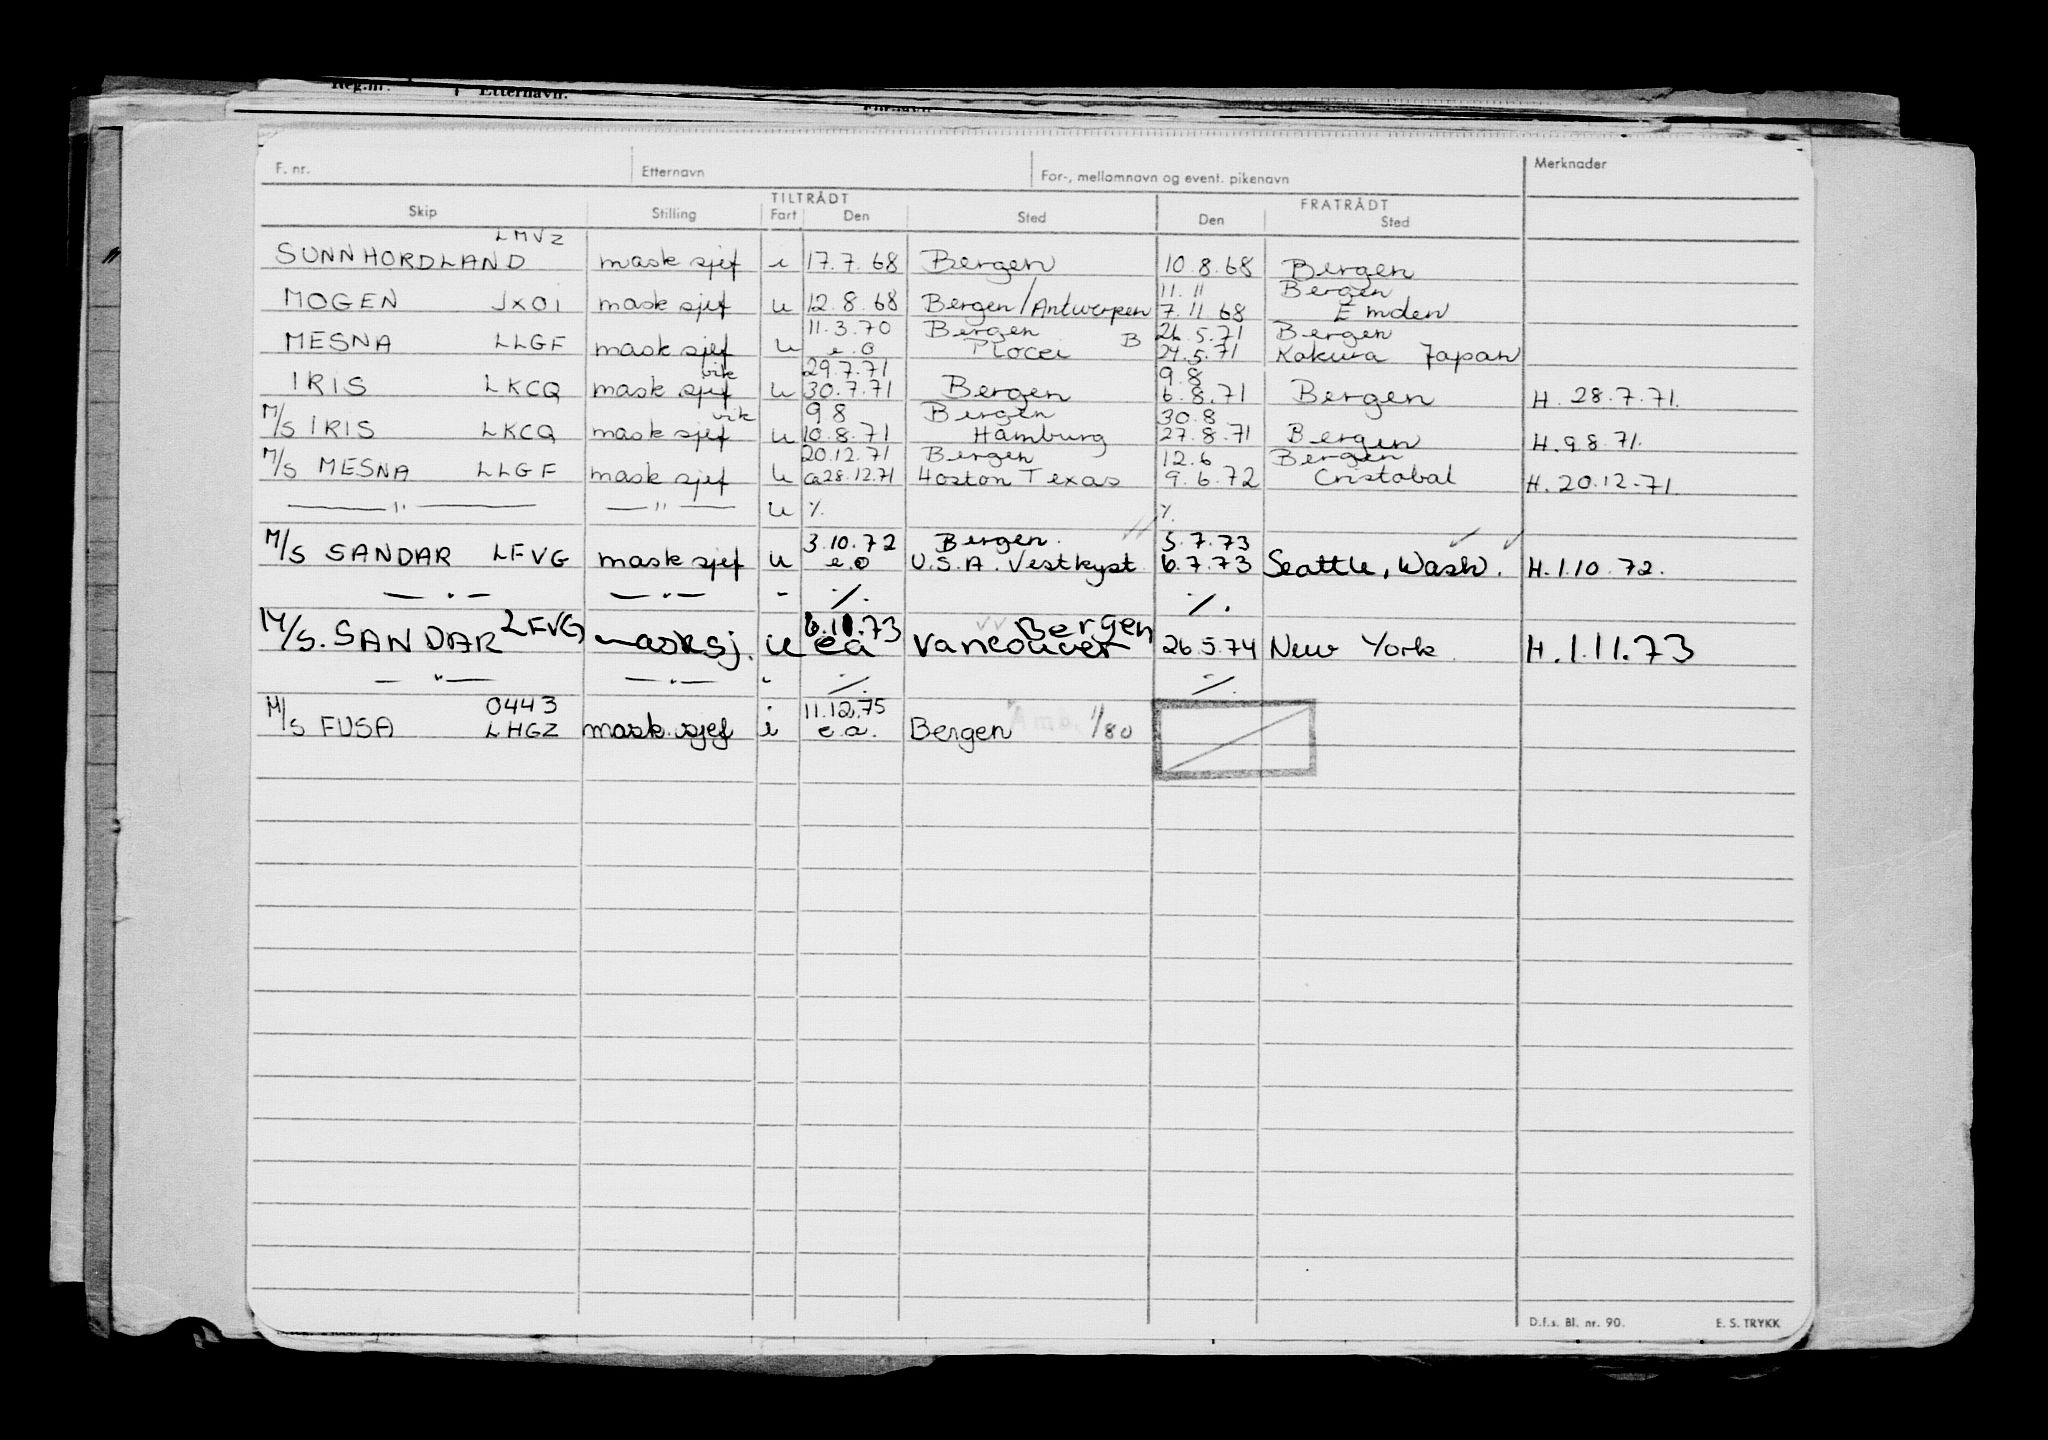 Reg.nr. Etternavn. Fornavn
F. nr. Etternavn For-, mellomnavn og event. pikenavn Merknader
TILTRÅDT FRATRÅDT
Skip Stilling Fart Den Sted Den Sted
LMVZ
SUNNHORDLAND mask sjef i 17.7.68 Bergen 10.8.68 Bergen
11.11 Bergen
MOGEN JXOI mask sjef u 12.8.68 Bergen/Antwerpen 7.11.68 Emden
11.3.70 Bergen 26.5.71 Bergen
MESNA LLGF mask sjef u e.o Plocei B 24.5.71 Kokura Japan
vik 29.7.71 9.8
IRIS LKCQ mask sjef u 30.7.71 Bergen 6.8.71 Bergen H. 28.7.71.
vik 9 8 Bergen 30.8
M/S IRIS LKCQ mask sjef u 10.8.71 Hamburg 27.8.71 Bergen H. 9.8.71.
20.12.71 Bergen 12.6 Bergen
M/S MESNA LLGF mask sjef u ca 28.12.71 Hoston Texas 9.6.72 Cristobal H. 20.12.71.
— " — — " — u ./. ./.
3.10.72 Bergen. 5.7.73
M/S SANDAR LFVG mask sjef u e.o U.S.A. Vestkyst 6.7.73 Seattle, Wash. H. 1.10.72.
— " — — " — " ./. ./.
6.11.73 Bergen
M/S. SANDAR LFVG masksj. u ca Vancouver 26.5.74 New York. H. 1.11.73
— " — — " — " ./. ./.
0443 11.12.75
M/S FUSA LHGZ mask. sjef i e.a. Bergen Amb. 1/80
D.f.s. Bl. nr. 90. E. S. TRYKK